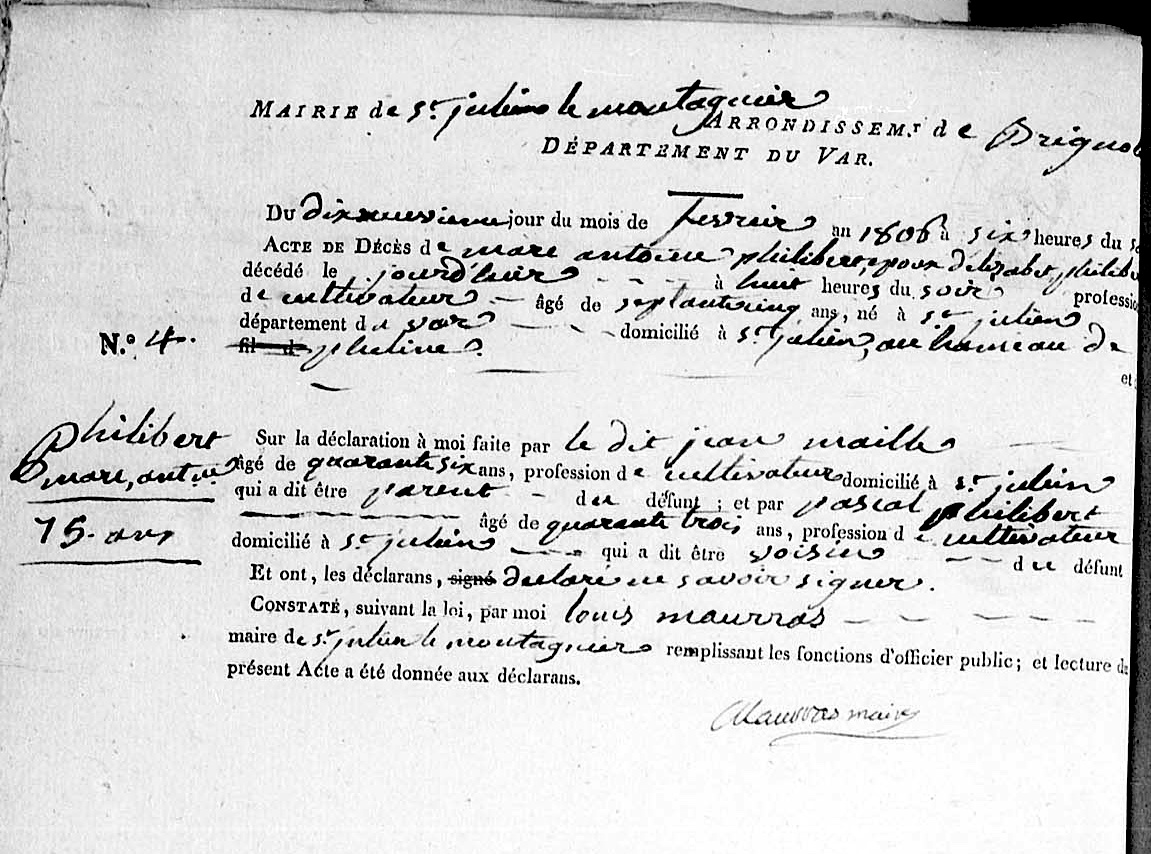 MAIRIE de St julien le montagnier
ARRONDISSEM.t de Brignol
DÉPARTEMENT DU VAR.
Du dixneuvieme jour du mois de fevrier an 1806 à six heures du so
ACTE DE DÉCÈS de marc antoine philibert, epoux d'elizabet philiber
décédé le jourd'huir - - - - à huit heures du soir profession
de cultivateur — âgé de septantecinq ans, né à St julien
département du var - - - - domicilié à St julien, au hameau de
N.o 4.
fil d pheline.
et
philibert
marc, ant.ne
75. ans
Sur la déclaration à moi faite par le dit jean maille
âgé de quarante six ans, profession de cultivateur domicilié à St julien
qui a dit être parent - du défunt; et par pascal philibert
âgé de quarante trois ans, profession de cultivateur
domicilié à St julien - - - qui a dit être voisin - - du défunt
Et ont, les déclarans, signé declaré ne savoir signer.
CONSTATÉ, suivant la loi, par moi louis maurras - - - -
maire de St julien le montagnier remplissant les fonctions d'officier public; et lecture du
présent Acte a été donnée aux déclarans.
Maurras maire